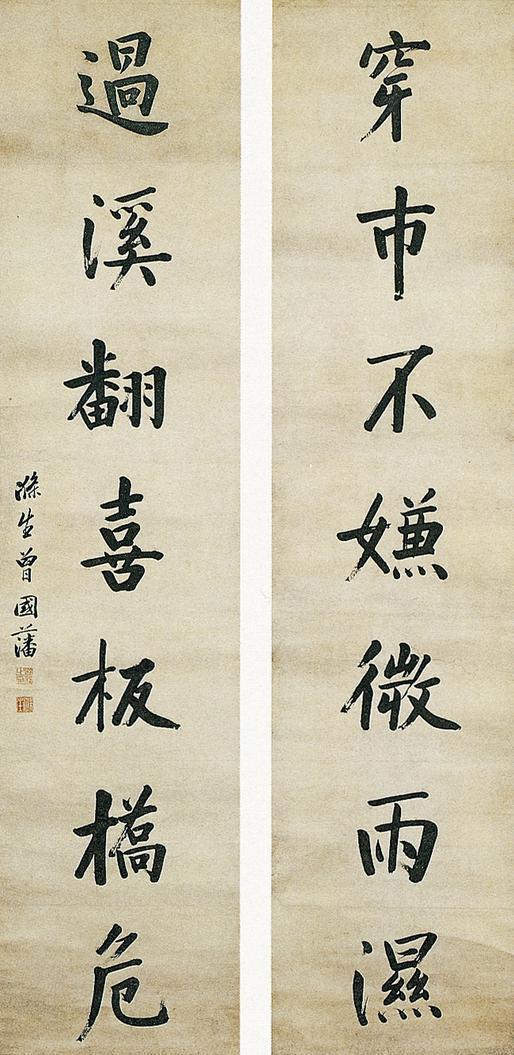 穿市不嫌微雨濕
過溪翻喜板橋危
滌生曾國藩